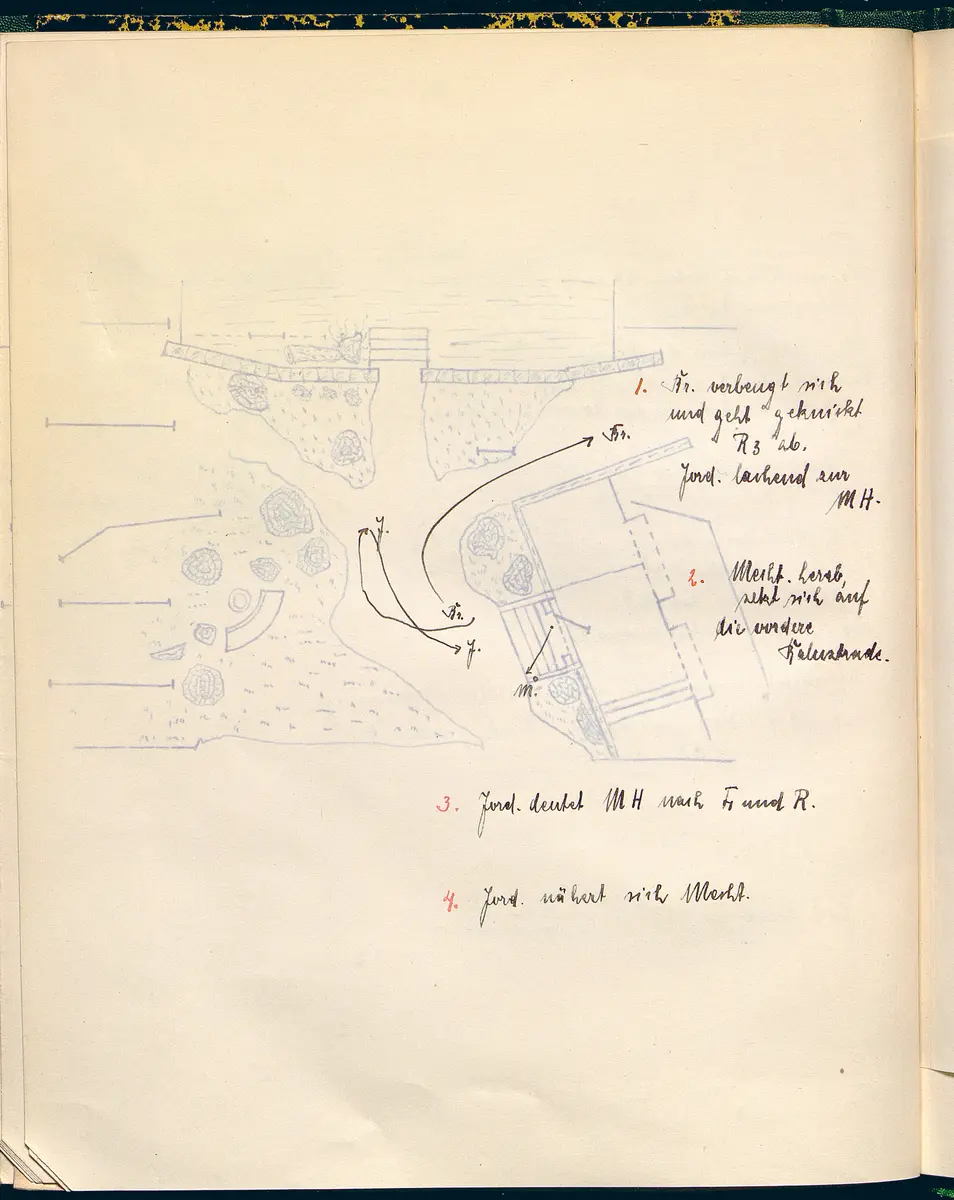 1. Kr. verbeugt sich
und geht "geknickt"
R3 ab.
Jord. lachend zur
MH.
Kr.
J.
2. Mecht. herab,
setzt sich auf
die vordere
Balustrade.
Kr.
J.
M.
3. Jord. deutet MH nach Fr und R.
4. Jord. nähert sich Mecht.